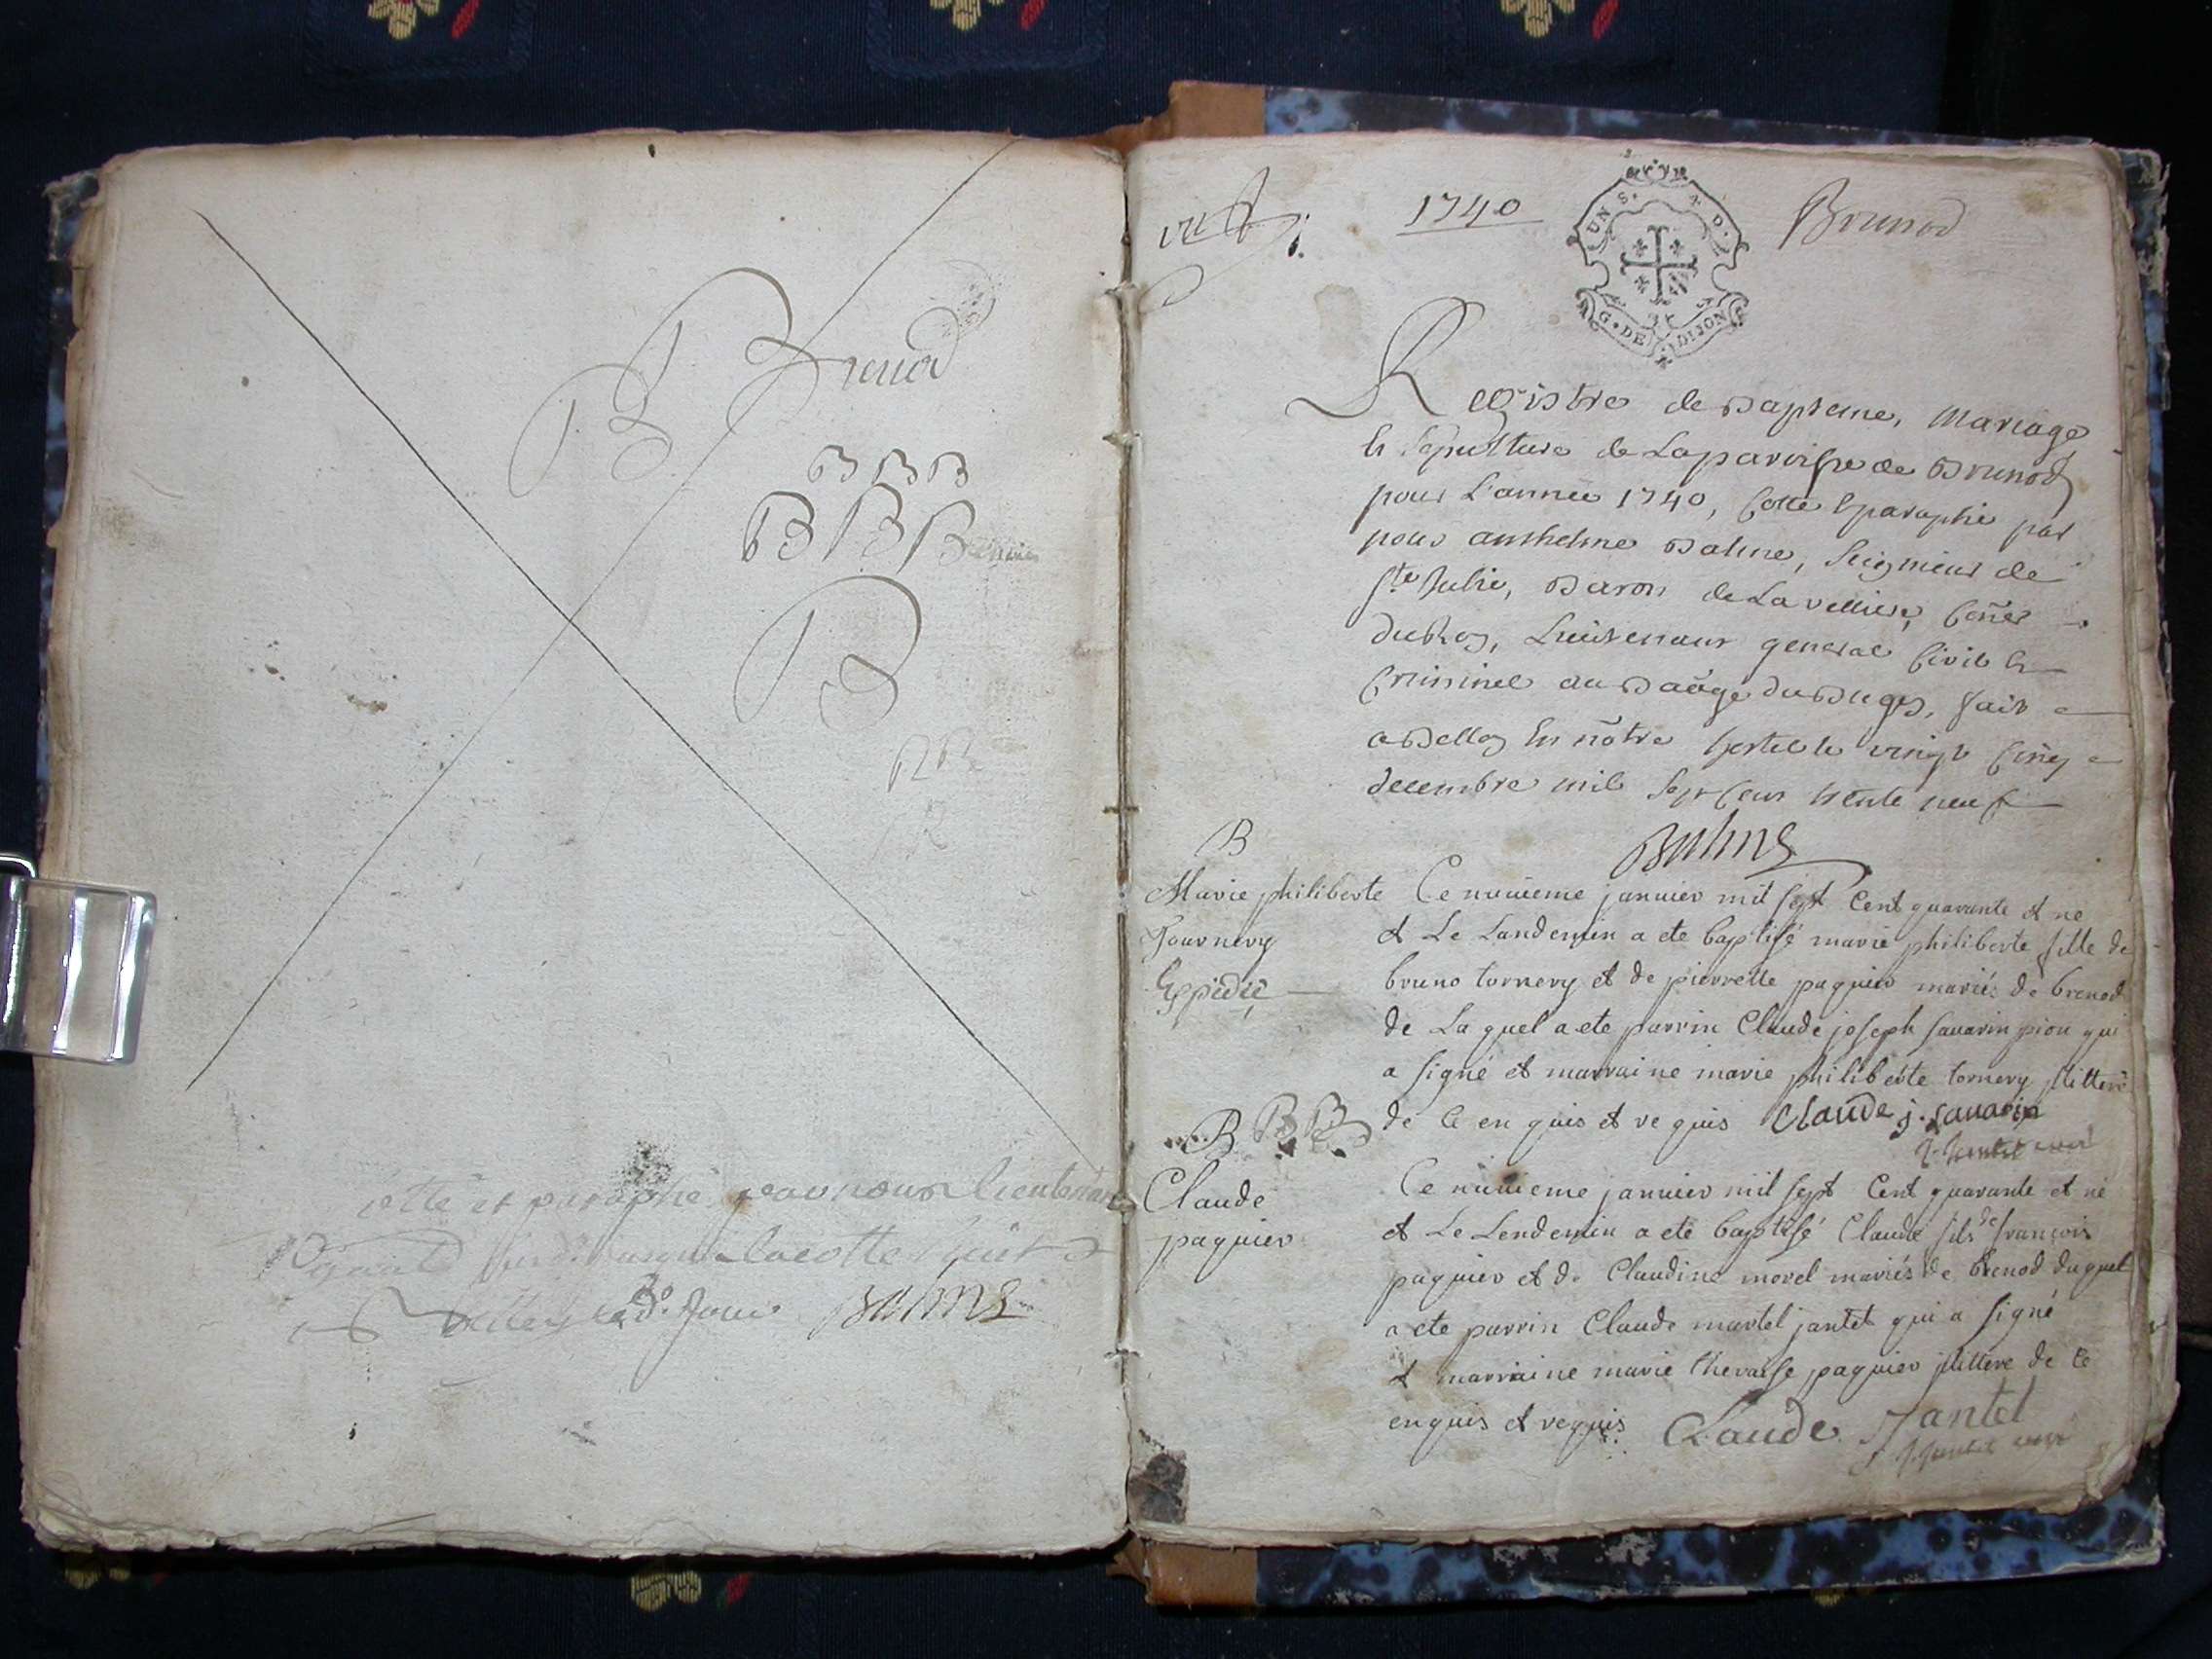 Brenod
B B B
B B B
B
cotté et paraphé par nous lieutenant
Balme
1740
Brunod
UN S. 4 D.
G. DE DIJON
Registre de Bapteme, Mariage
Et Sepulture de La paroisse de Brunod
pour L'année 1740, Cotté Et paraphé par
nous anthelme Balme, Seigneur de
Ste Julie, Baron de La velliere, Coner
Du Roy, Lieutenant general Civil Et
Criminel au Baage du Bugey, fait
a Belley En notre hostel le vingt Cinq
decembre mil Sept Cent trente neuf
Balme
B
Marie philiberte
Tournery
Expedié
Ce nuuieme januier mil sept Cent quarante et ne
et Le Landemin a ete baptisé marie philiberte fille de
bruno tornery et de pierrette paquier mariés de brenod
de La quel a ete parrin Claude joseph sauarin pion qui
a signé et marraine marie philiberte tornery jllitteré
de Ce en quis et re quis Claude j. sauarin
B B B
Claude
paquier
Ce nuuieme januier mil sept Cent quarante et né
et Le Lendemin a eté baptisé Claude fils de françois
paquier et de Claudine morel mariés de brenod duquel
a ete parrin Claude martel jantet qui a signé
et marraine marie theraise paquier jllittere de Ce
enquis et requis Claude Jantet